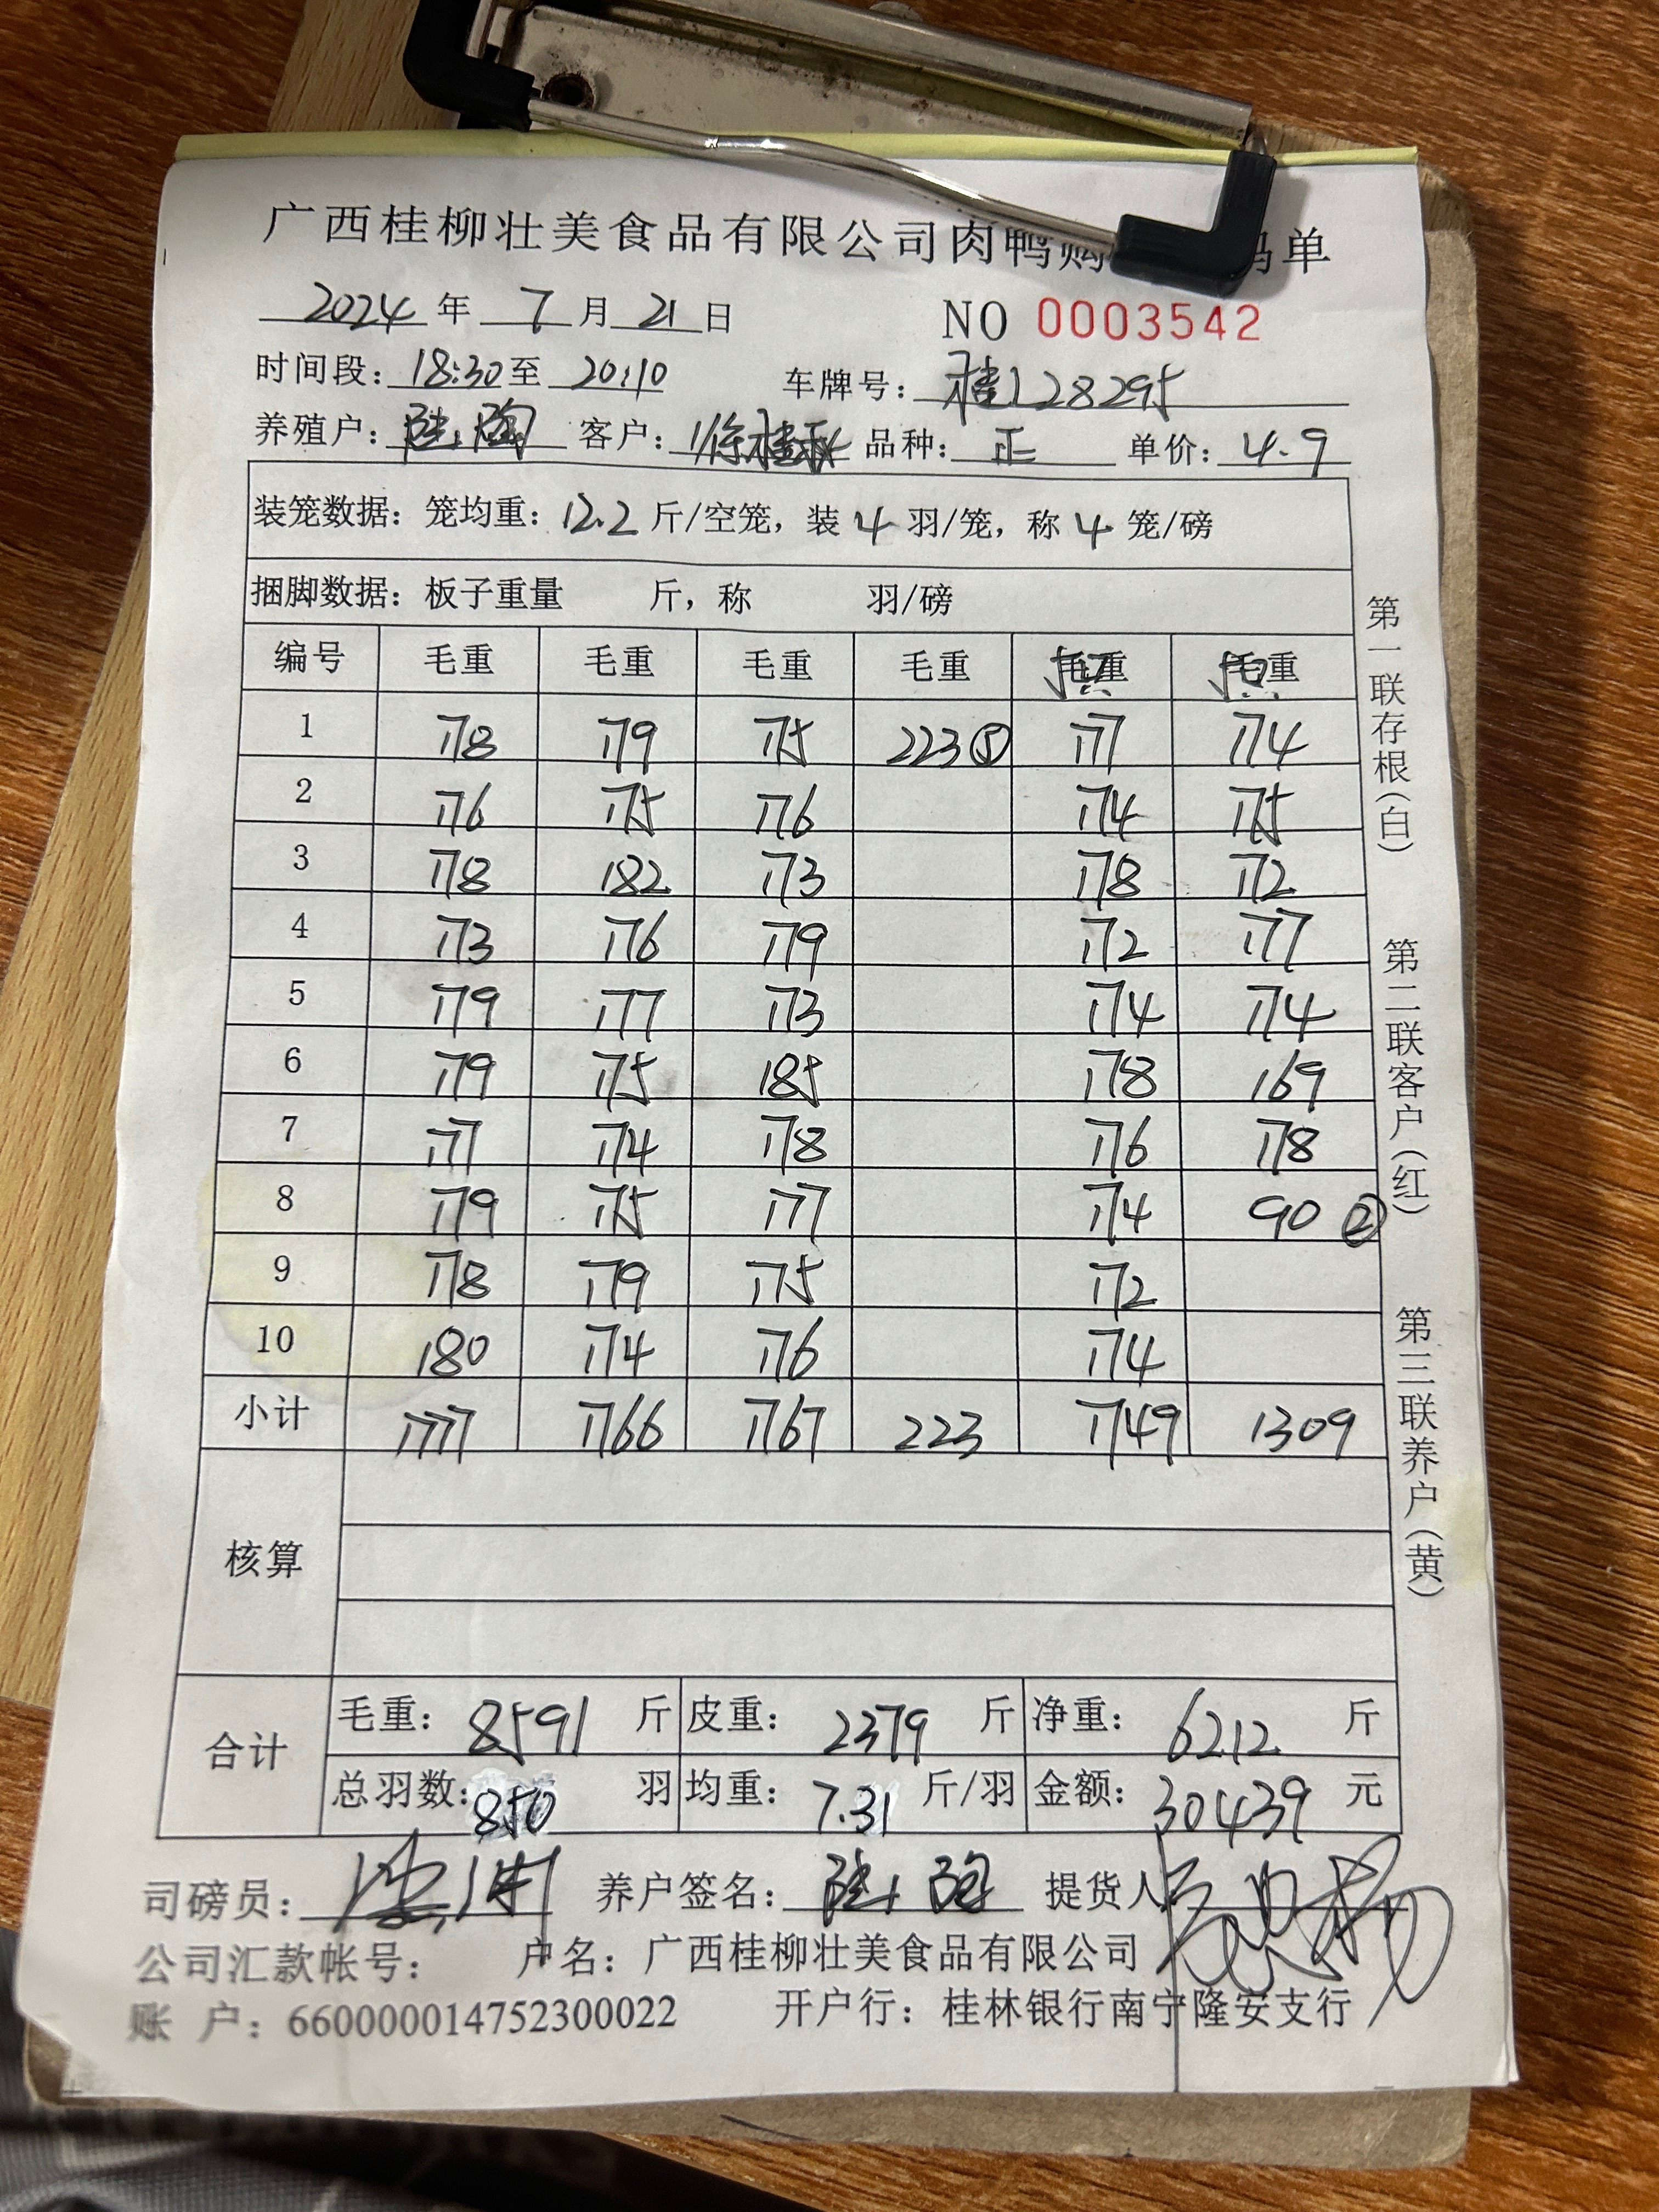 广西桂柳壮美食品有限公司肉鸭购 码单
2024 年 7 月 21 日 NO 0003542
时间段: 18:30 至 20:10 车牌号: 桂J28295
养殖户: 客户: 徐桂秋 品种: 正 单价: 4.9
装笼数据: 笼均重: 12.2 斤/空笼, 装 4 羽/笼, 称 4 笼/磅
捆脚数据: 板子重量 斤, 称 羽/磅
编号 毛重 毛重 毛重 毛重 毛重 毛重
1 178 179 175 223⑤ 177 174
2 176 175 176 174 175
3 178 182 173 178 172
4 173 176 179 172 177
5 179 177 173 174 174
6 179 175 185 178 169
7 177 174 178 176 178
8 179 175 177 174 90②
9 178 179 175 172
10 180 174 176 174
小计 1777 1766 1767 223 1749 1309
核算
合计
毛重: 8591 斤 皮重: 2379 斤 净重: 6212 斤
总羽数: 850 羽 均重: 7.31 斤/羽 金额: 30439 元
司磅员: 养户签名: 提货人
公司汇款帐号: 户名: 广西桂柳壮美食品有限公司
账 户: 660000014752300022 开户行: 桂林银行南宁隆安支行
第一联存根(白)
第二联客户(红)
第三联养户(黄)